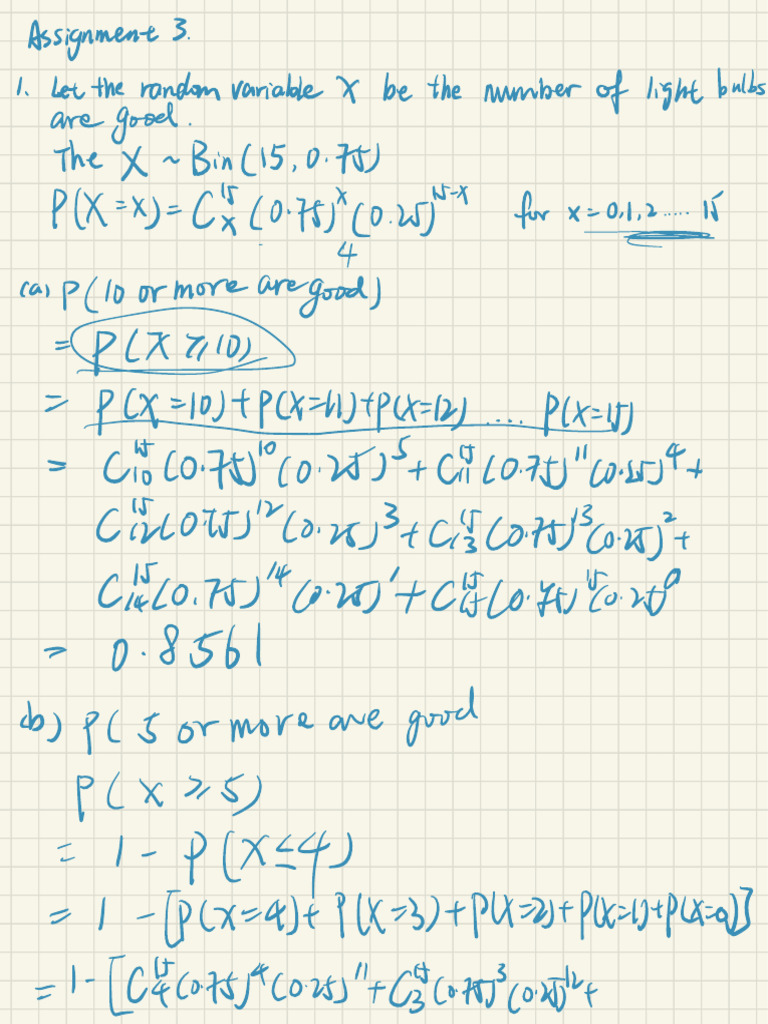 Assignment 3.
1. Let the random variable X be the number of light bulbs
are good.
The X ~ Bin(15, 0.75)
P(X=x) = C₍ₓ₎¹⁵ (0.75)ˣ (0.25)¹⁵⁻ˣ for x=0,1,2.....15
4
(a) P(10 or more are good)
= P(X ≥ 10)
= P(X=10)+P(X=11)+P(X=12) .... P(X=15)
= C₁₀¹⁵ (0.75)¹⁰ (0.25)⁵ + C₁₁¹⁵ (0.75)¹¹ (0.25)⁴ +
C₁₂¹⁵ (0.75)¹² (0.25)³ + C₁₃¹⁵ (0.75)¹³ (0.25)² +
C₁₄¹⁵ (0.75)¹⁴ (0.25)¹ + C₁₅¹⁵ (0.75)¹⁵ (0.25)⁰
= 0.8561
(b) P( 5 or more are good
P( X ≥ 5)
= 1 - P(X ≤ 4)
= 1 - [P(X=4)+ P(X=3)+P(X=2)+P(X=1)+P(X=0)]
= 1 - [C₄¹⁵ (0.75)⁴ (0.25)¹¹ + C₃¹⁵ (0.75)³ (0.25)¹² +